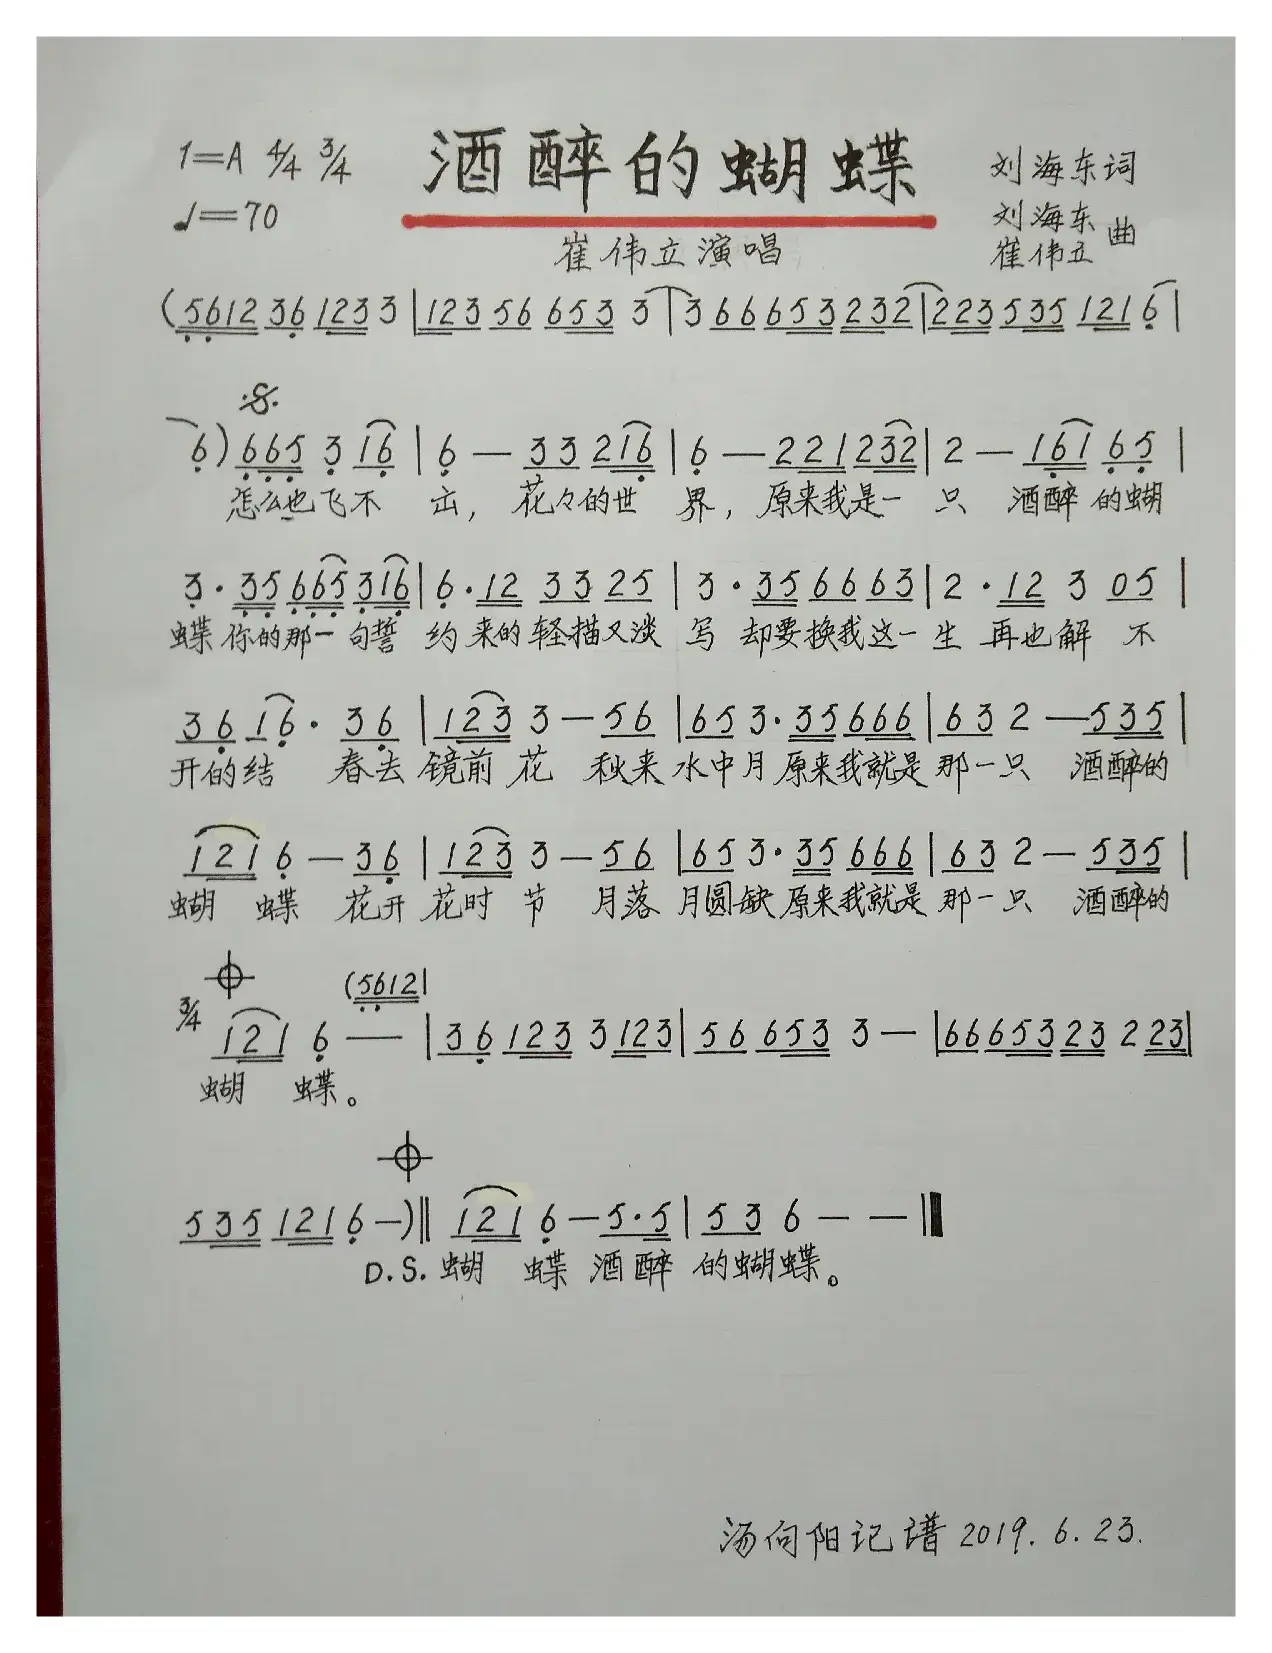 1=A 4/4 3/4 酒醉的蝴蝶 刘海东词
♩=70 刘海东
崔伟立 曲
崔伟立演唱
(5612 36 1233 3 | 123 56 653 3 | 3 66 6653 232 | 223 535 121 6 |
𝄋
6) 665 3 16 | 6 — 33 216 | 6 — 221 232 | 2 — 161 65 |
怎么也飞不 出, 花々的世 界, 原来我是一 只 酒醉的蝴
3· 35 665 316 | 6·12 33 25 | 3·35 66 63 | 2·12 3 05 |
蝶 你的那一句誓 约 来的轻描又淡 写 却要换我这一生 再也解 不
36 16· 36 | 123 3 — 56 | 653·35 666 | 63 2 — 535 |
开的结 春去 镜前 花 秋来 水中月 原来我就是 那一只 酒醉的
121 6 — 36 | 123 3 — 56 | 653·35 666 | 63 2 — 535 |
蝴 蝶 花开 花时 节 月落 月圆缺 原来我就是 那一只 酒醉的
(5612|
3/4 121 6 — — | 36 123 3 123 | 56 653 3 — | 66 653 23 2 23 |
蝴 蝶。
535 121 6 —)‖ 121 6 — 5·5 | 53 6 — — ‖
D.S. 蝴 蝶 酒醉 的蝴蝶。
汤向阳记谱 2019.6.23.